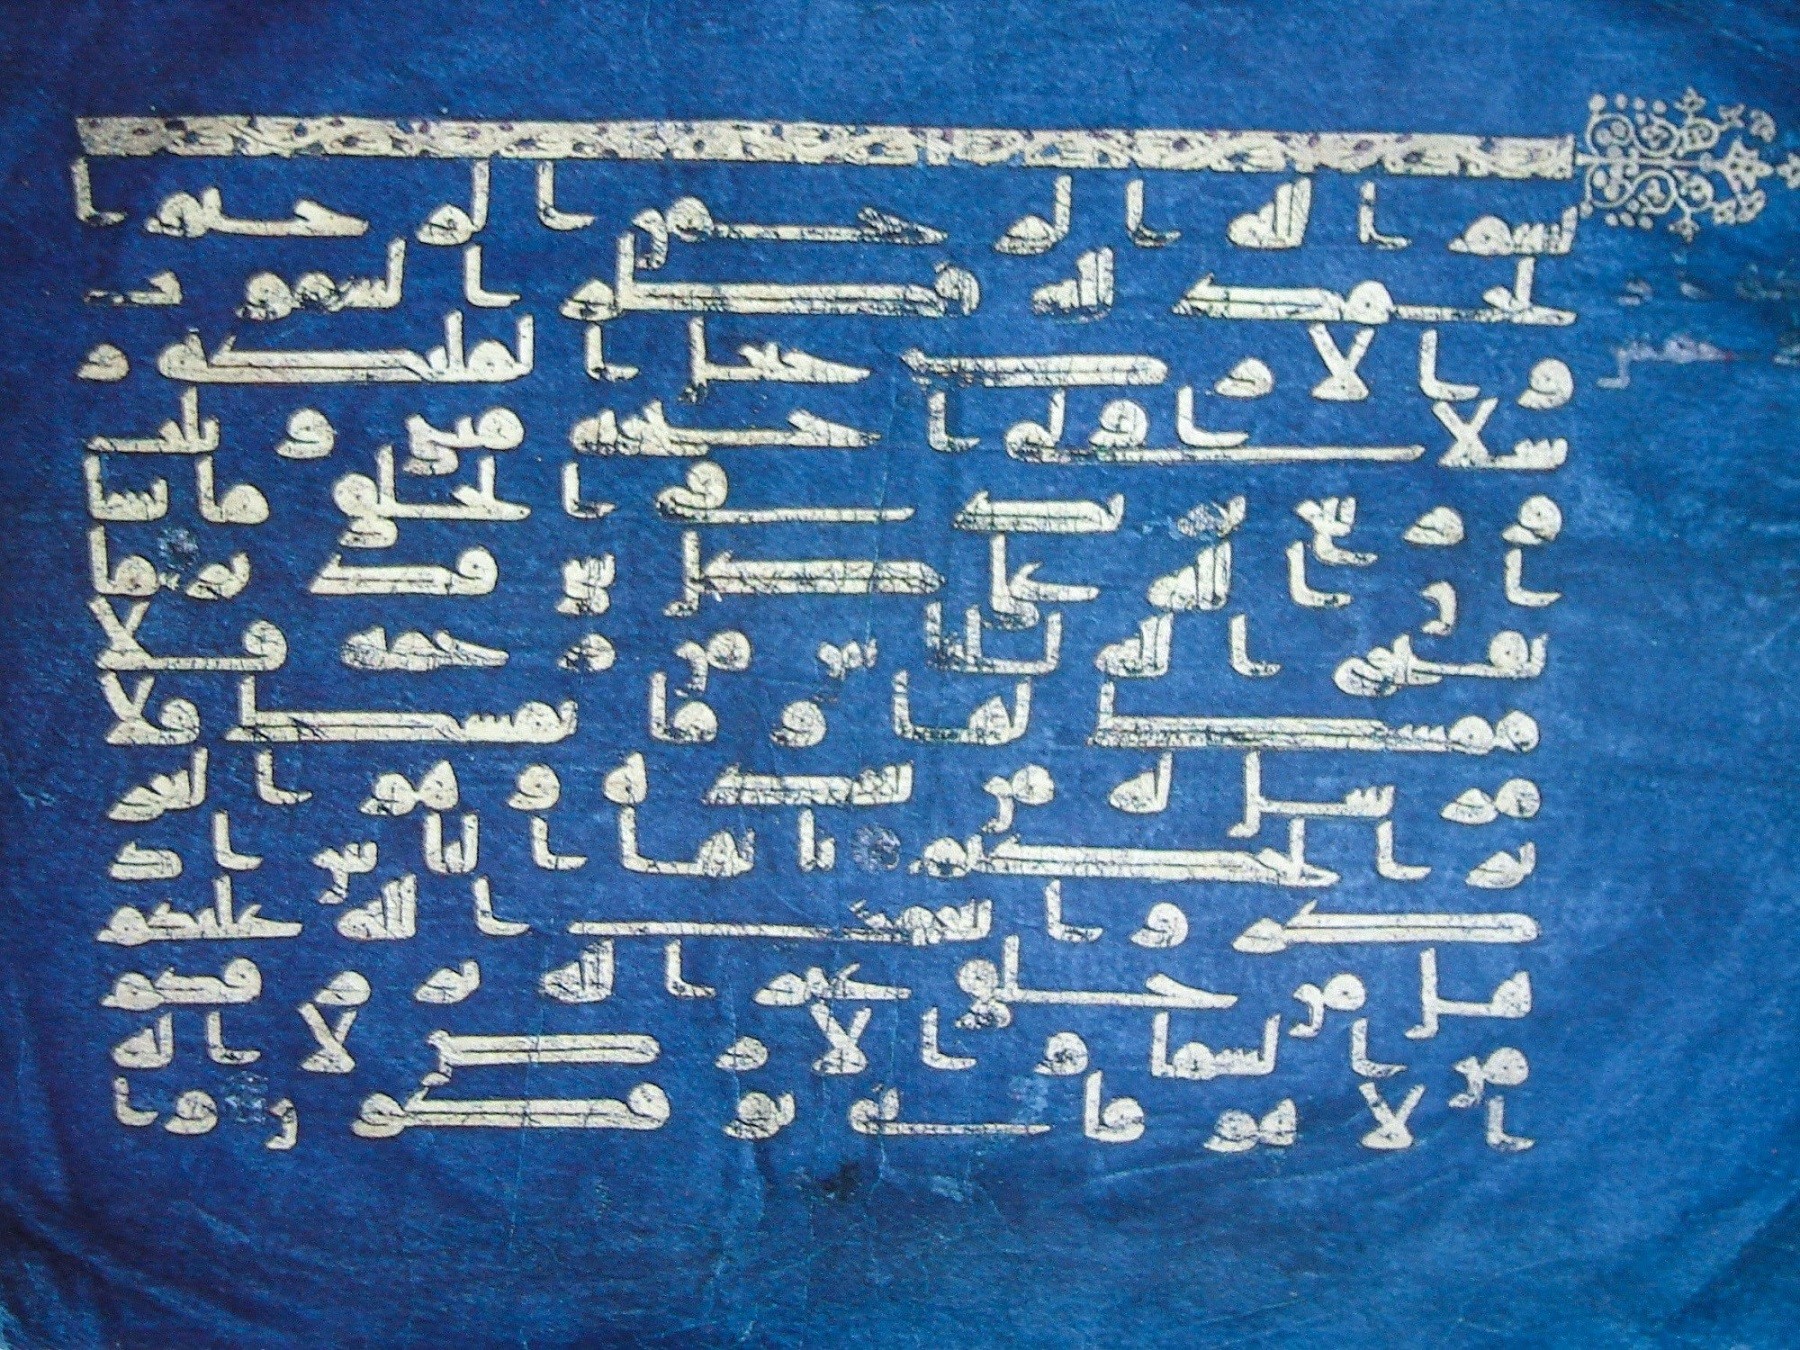 بسم الله الرحمن الرحيم ا
لحمد لله فطر السموت
والارض جاعل الملئكة ر
سلا اولى اجنحة مثنى وثلث
وربع يزيد فى الخلق ما يشا
ان الله على كل شى قدير ما
يفتح الله للناس من رحمة فلا
ممسك لها وما يمسك فلا
مرسل له من بعده وهو العز
يز الحكيم يايها الناس اذ
كروا نعمت الله عليكم
هل من خلق غير الله يرزقكم
من السما والارض لا اله
الا هو فانى توفكون وا